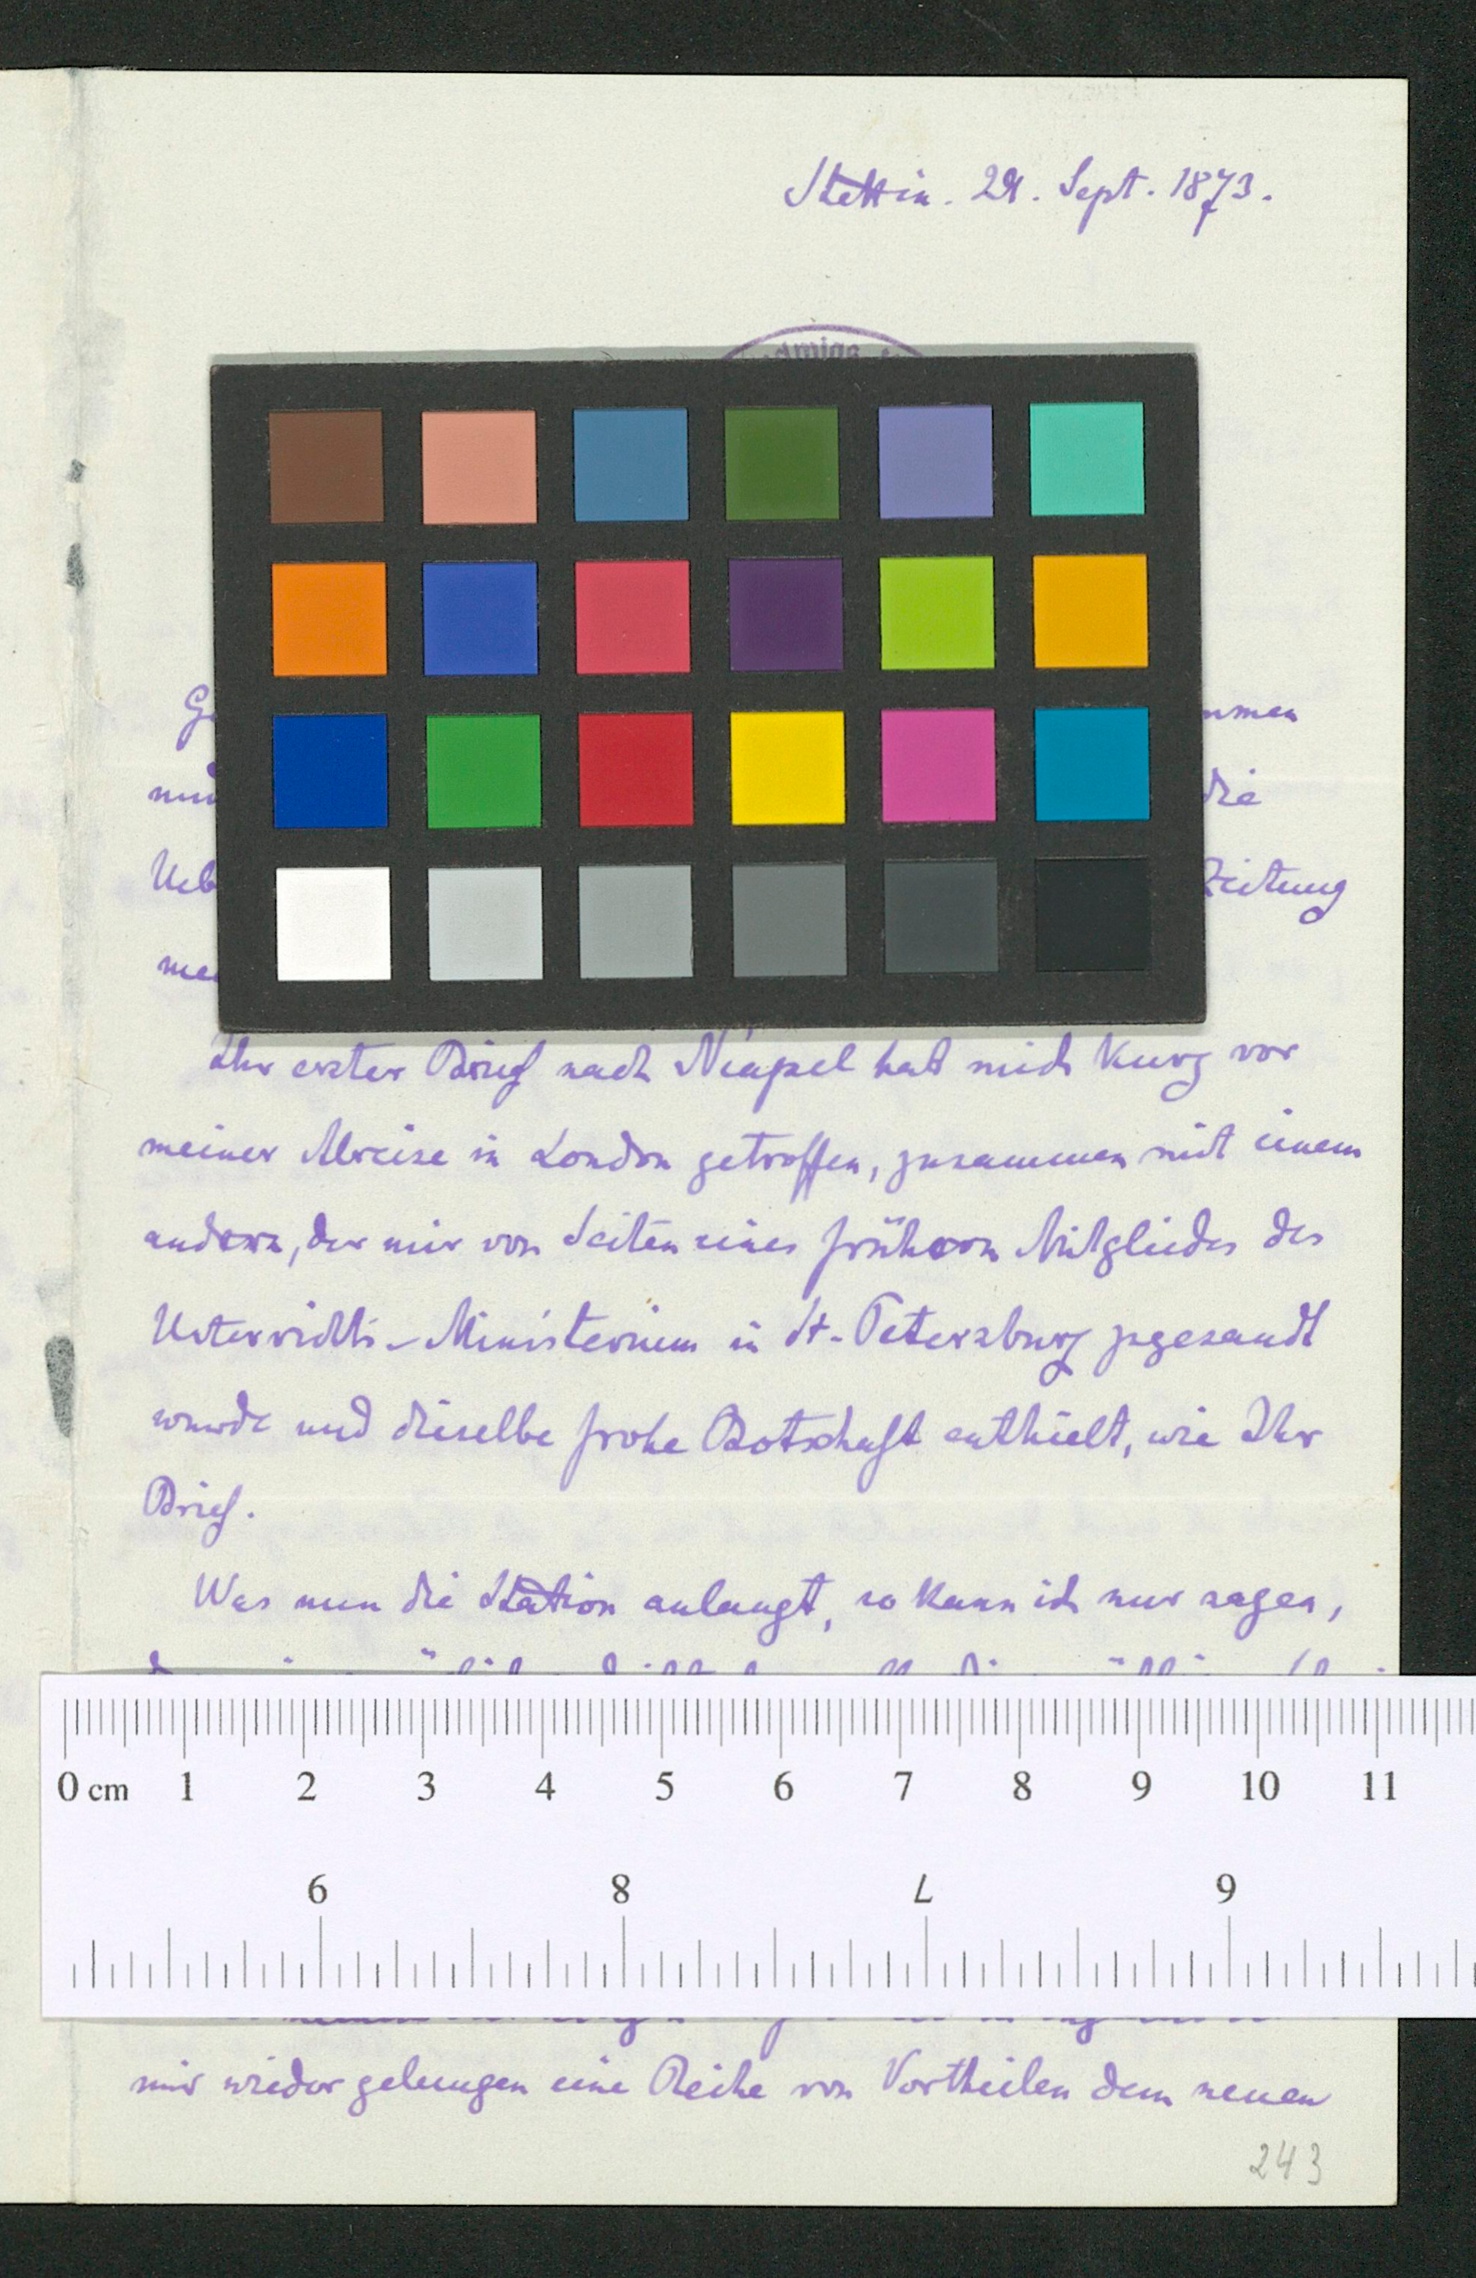 Stettin. 29. Sept. 1873.
die
Zeitung
Ihr erster Brief nach Neapel hat mich kurz vor
meiner Abreise in London getroffen, zusammen mit einem
andern, der mir von Seiten eines frühern Mitgliedes des
Unterrichts-Ministerium in St. Petersburg zugesandt
wurde und dieselbe frohe Botschaft enthielt, wie Ihr
Brief.
Was nun die Station anlangt, so kann ich nur sagen,
0 cm 1 2 3 4 5 6 7 8 9 10 11
6 8 7 9
mir wieder gelungen eine Reihe von Vortheilen dem neuen
243